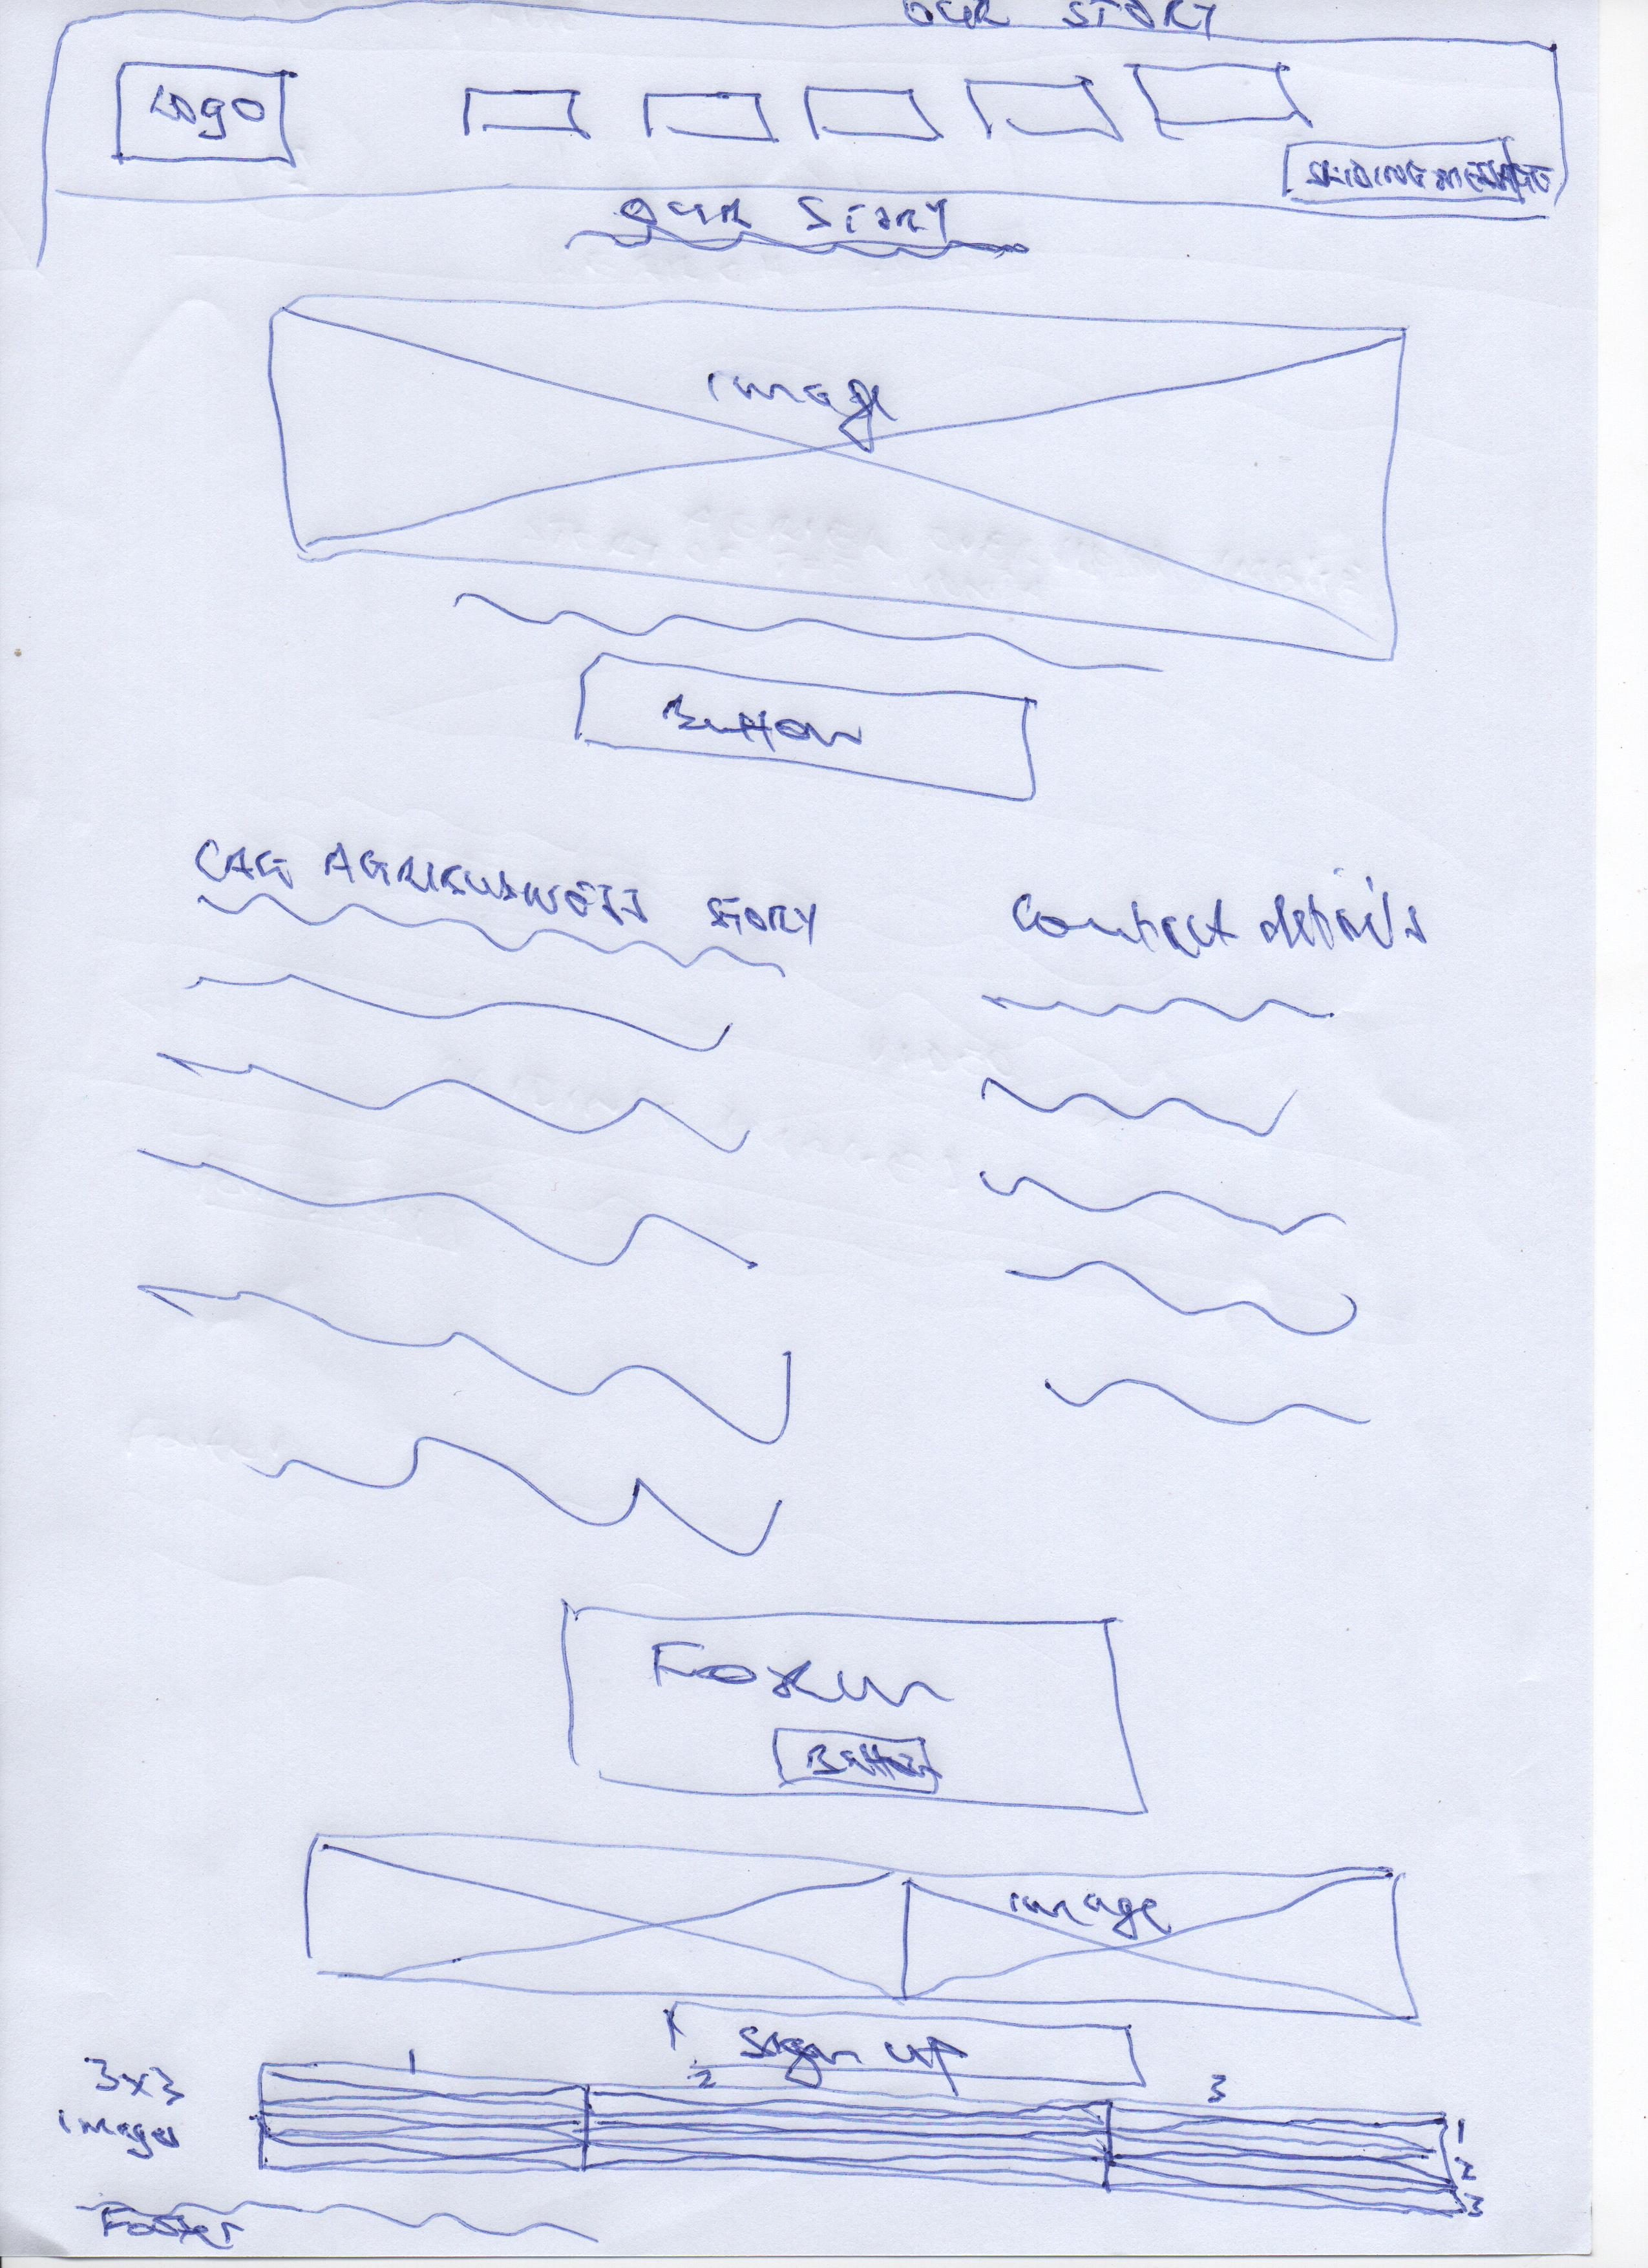 OUR STORY
Logo
SLIDING MESSAGE
OUR STORY
image
Button
CAG AGRIBUSINESS STORY
Contact details
Form
Button
image
Sign up
1 2 3
3x3
images
1
2
3
Footer